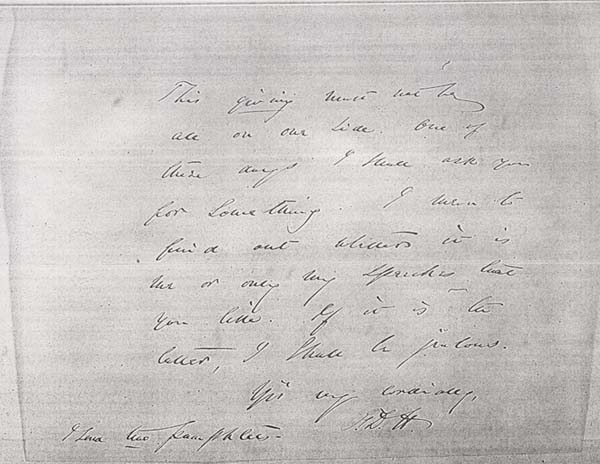 This giving must not be
all on one side. One of
these days I shall ask you
for something. I mean to
find out whether it is
me or only my speeches that
you like. If it is the
latter, I shall be jealous.
Yrs very cordially,
H.
I send two pamphlets.